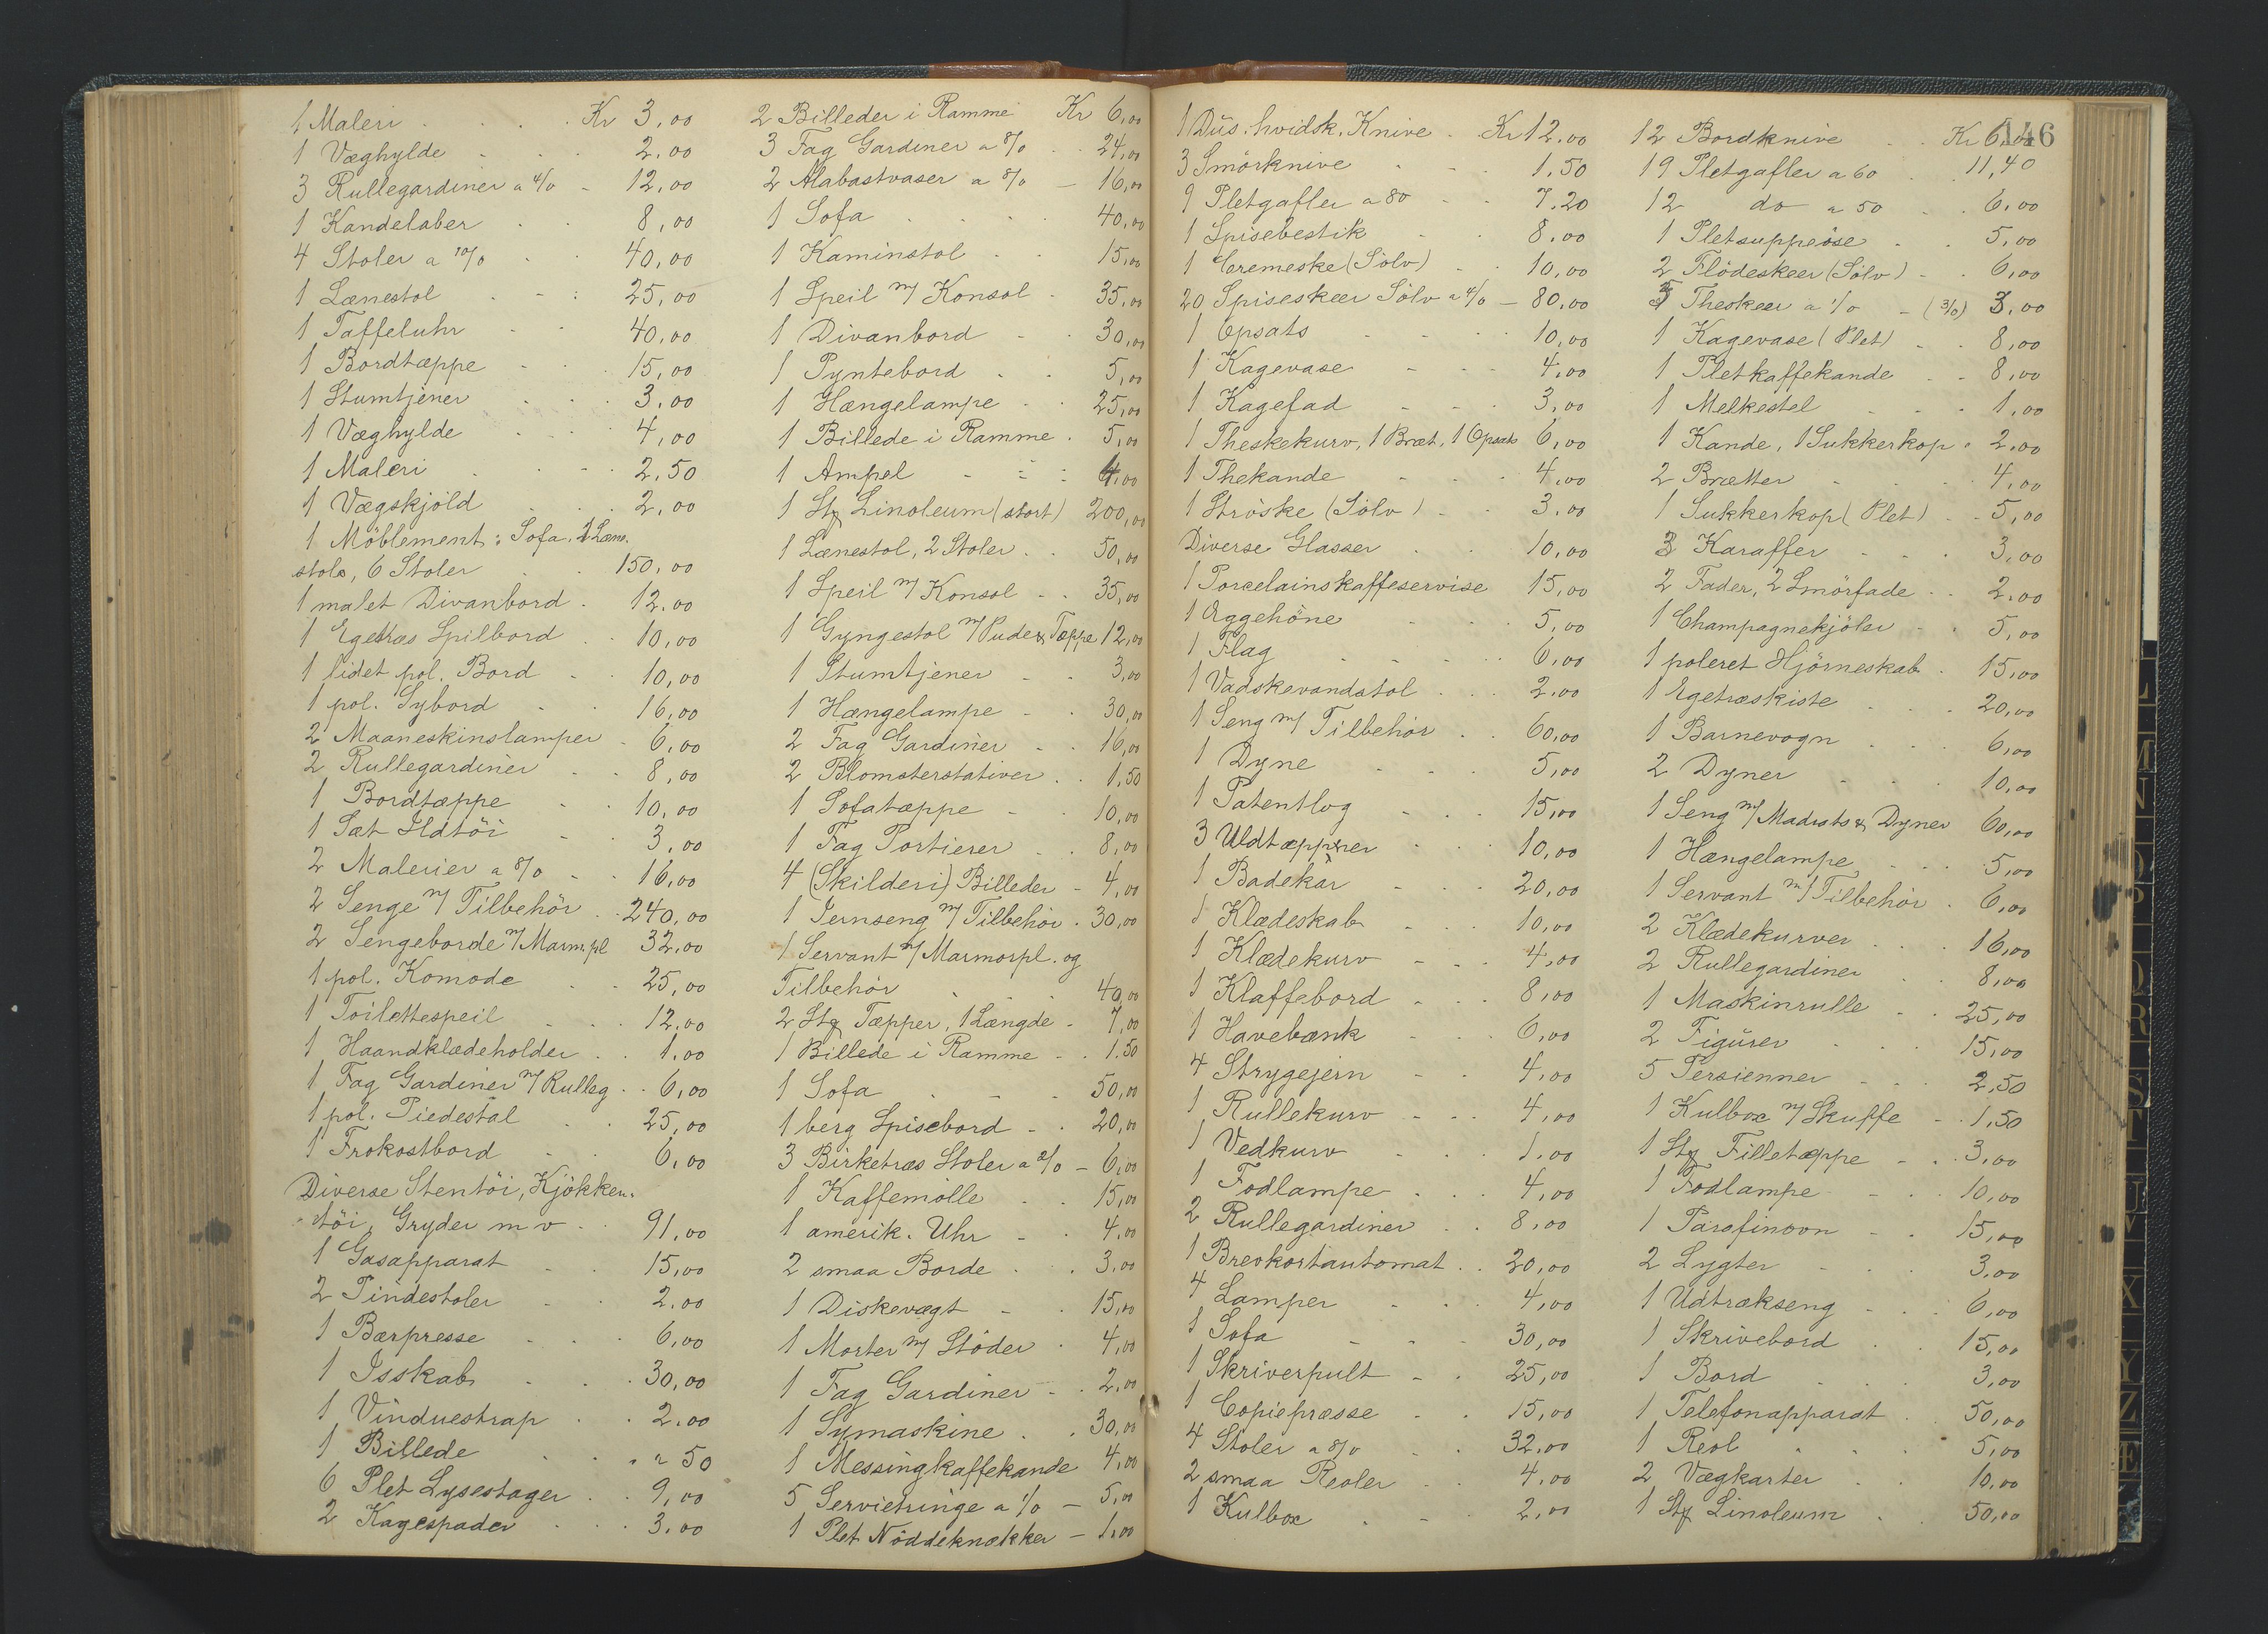 1 Maleri . . . . Kr 3,00
1 Væghylde - - - 2,00
3 Rullegardiner a 4/0 - 12,00
1 Kandelaber - - 8,00
4 Stoler a 10/0 - - 40,00
1 Lænestol - - - 25,00
1 Taffeluhr - - 40,00
1 Bordtæppe - - 15,00
1 Stumtjener - - - 3,00
1 Væghylde - - - 4,00
1 Maleri - - - - 2,50
1 Vægskjold - - 2,00
1 Möblement: Sofa, 2 Læne-
stole, 6 Stoler - - 150,00
1 malet Divanbord . 12,00
1 Egetræs Spilbord . . 10,00
1 lidet pol. Bord - - 10,00
1 pol. Sybord - - 16,00
2 Maaneskinslamper - 6,00
2 Rullegardiner - - 8,00
1 Bordtæppe - - 10,00
1 Sæt Ildtöi - - 3,00
2 Malerier a 8/0 - - 16,00
2 Senge m/ Tilbehör . . 240,00
2 Sengeborde m/ Marm.pl 32,00
1 pol. Komode - - 25,00
1 Toilettespeil - - - 12,00
1 Haandklædeholder . . 1,00
1 Fag Gardiner m/ Rulleg . . 6,00
1 pol. Piedestal - - 25,00
1 Frokostbord - - 6,00
Diverse Stentöi, Kjökken-
töi, Gryder m v . . 91,00
1 Gasapparat - - 15,00
2 Pindestoler - - 2,00
1 Bærpresse - - - 6,00
1 Isskab - - - 30,00
1 Vinduestrap . . 2,00
1 Billede - - " " 50
6 Plet Lysestager . . 9,00
2 Kagespader . . . 3,00
2 Billeder i Ramme Kr 6,00
3 Fag Gardiner a 8/0 . . 24,00
2 Alabastvaser a 8/0 - 16,00
1 Sofa . . . . 40,00
1 Kaminstol . . 15,00
1 Speil m/ Konsol - 35,00
1 Divanbord - - 30,00
1 Pyntebord . . 5,00
1 Hængelampe - - 25,00
1 Billede i Ramme . 5,00
1 Ampel - - - 4,00
1 Stk Linoleum (stort) 200,00
1 Lænestol, 2 Stoler . . 50,00
1 Speil m/ Konsol . . 35,00
1 Gyngestol m/ Pude & Tæppe 12,00
1 Stumtjener - - 3,00
1 Hængelampe - . 30,00
2 Fag Gardiner - . 16,00
2 Blomsterstativer . . 1,50
1 Sofatæppe - - 10,00
1 Fag Portierer . . 8,00
4 (Skilderi) Billeder - 4,00
1 Jernseng m/ Tilbehör . 30,00
1 Servant m/ Marmorpl. og
Tilbehör . . . 40,00
2 Stk Tæpper, 1 Længde - 7,00
1 Billede i Ramme - . 1,50
1 Sofa . - - 50,00
1 berg Spisebord - . 20,00
3 Birketræs Stoler a 2/0 - 6,00
1 Kaffemölle . . 15,00
1 amerik. Uhr - . 4,00
2 smaa Borde . . 3,00
1 Diskevægt - . 15,00
1 Morter m/ Stöder . 4,00
1 Fag Gardiner - . 2,00
1 Symaskine . . 30,00
1 Messingkaffekande 4,00
5 Servietringe a 1/0 - 5,00
1 Plet Nöddeknækker - 1,00
146
1 Dus. hvidsk. Knive . Kr 12,00
3 Smörknive - - - 1,50
9 Pletgafler a 80 - - 7,20
1 Spisebestik - - 8,00
1 Cremeske (Sölv) - - 10,00
20 Spiseskeer Sölv a 4/0 - 80,00
1 Opsats - - - 10,00
1 Kagevase - - - 4,00
1 Kagefad - - - 3,00
1 Theskekurv, 1 Bræt, 1 Opsats 6,00
1 Thekande - - - 4,00
1 Ströske (Sölv) - - 3,00
Diverse Glasser . . 10,00
1 Porcelainskaffeservise 15,00
1 Æggehöne - - - 5,00
1 Flag - - - - 6,00
1 Vadskevandstol . . . 2,00
1 Seng m/ Tilbehör . . 60,00
1 Dyne - - - 5,00
1 Patentlog - - - 15,00
3 Uldtæpper . . . 10,00
1 Badekar - - - 20,00
1 Klædeskab - - - 10,00
1 Klædekurv - - - 4,00
1 Klaffebord - - - 8,00
1 Havebænk - - - 6,00
4 Strygejern - - 4,00
1 Rullekurv - - - 4,00
1 Vedkurv - - - 1,00
1 Fodlampe - - - 4,00
2 Rullegardiner . . 8,00
1 Brevkortautomat . . 20,00
4 Lamper - - - 4,00
1 Sofa - - - 30,00
1 Skriverpult - . 25,00
1 Copiepresse - . 15,00
4 Stoler a 8/0 . . 32,00
2 smaa Reoler . . 4,00
1 Kulbox . - - 2,00
12 Bordknive . . Kr 6,00
19 Pletgafler a 60 . . 11,40
12 do a 50 . . 6,00
1 Pletsuppeöse - . 5,00
2 Flödeskeer (Sölv) - . 6,00
3 Theskeer a 1/0 - (3/0) 3,00
1 Kagevase (Plet) - . 8,00
1 Pletkaffekande - - 8,00
1 Melkestel - - . 1,00
1 Kande, 1 Sukkerkop . 2,00
2 Brætter - - - 4,00
1 Sukkerkop (Plet) - . 5,00
3 Karaffer - - - 3,00
2 Fader, 2 Smörfade - . 2,00
1 Champagnekjöler - . 5,00
1 poleret Hjörneskab . 15,00
1 Egetræskiste . . . 20,00
1 Barnevogn . . . 6,00
2 Dyner - - - 10,00
1 Seng m/ Madrats & Dyner 60,00
1 Hængelampe - - - 5,00
1 Servant m/ Tilbehör . 6,00
2 Klædekurver . . . 16,00
2 Rullegardiner . . 8,00
1 Maskinrulle . . 25,00
2 Figurer . . . 15,00
5 Persienner - - - 2,50
1 Kulbox m/ Skuffe - . 1,50
1 Stk Filletæppe - . 3,00
1 Fodlampe - - . 10,00
1 Parafinovn - . 15,00
2 Lygter - - - 3,00
1 Udtrækseng - - . 6,00
1 Skrivebord . . 15,00
1 Bord . . . 3,00
1 Telefonapparat . 50,00
1 Reol . . . 5,00
2 Vægkarter . . 10,00
1 Stk Linoleum . . 50,00